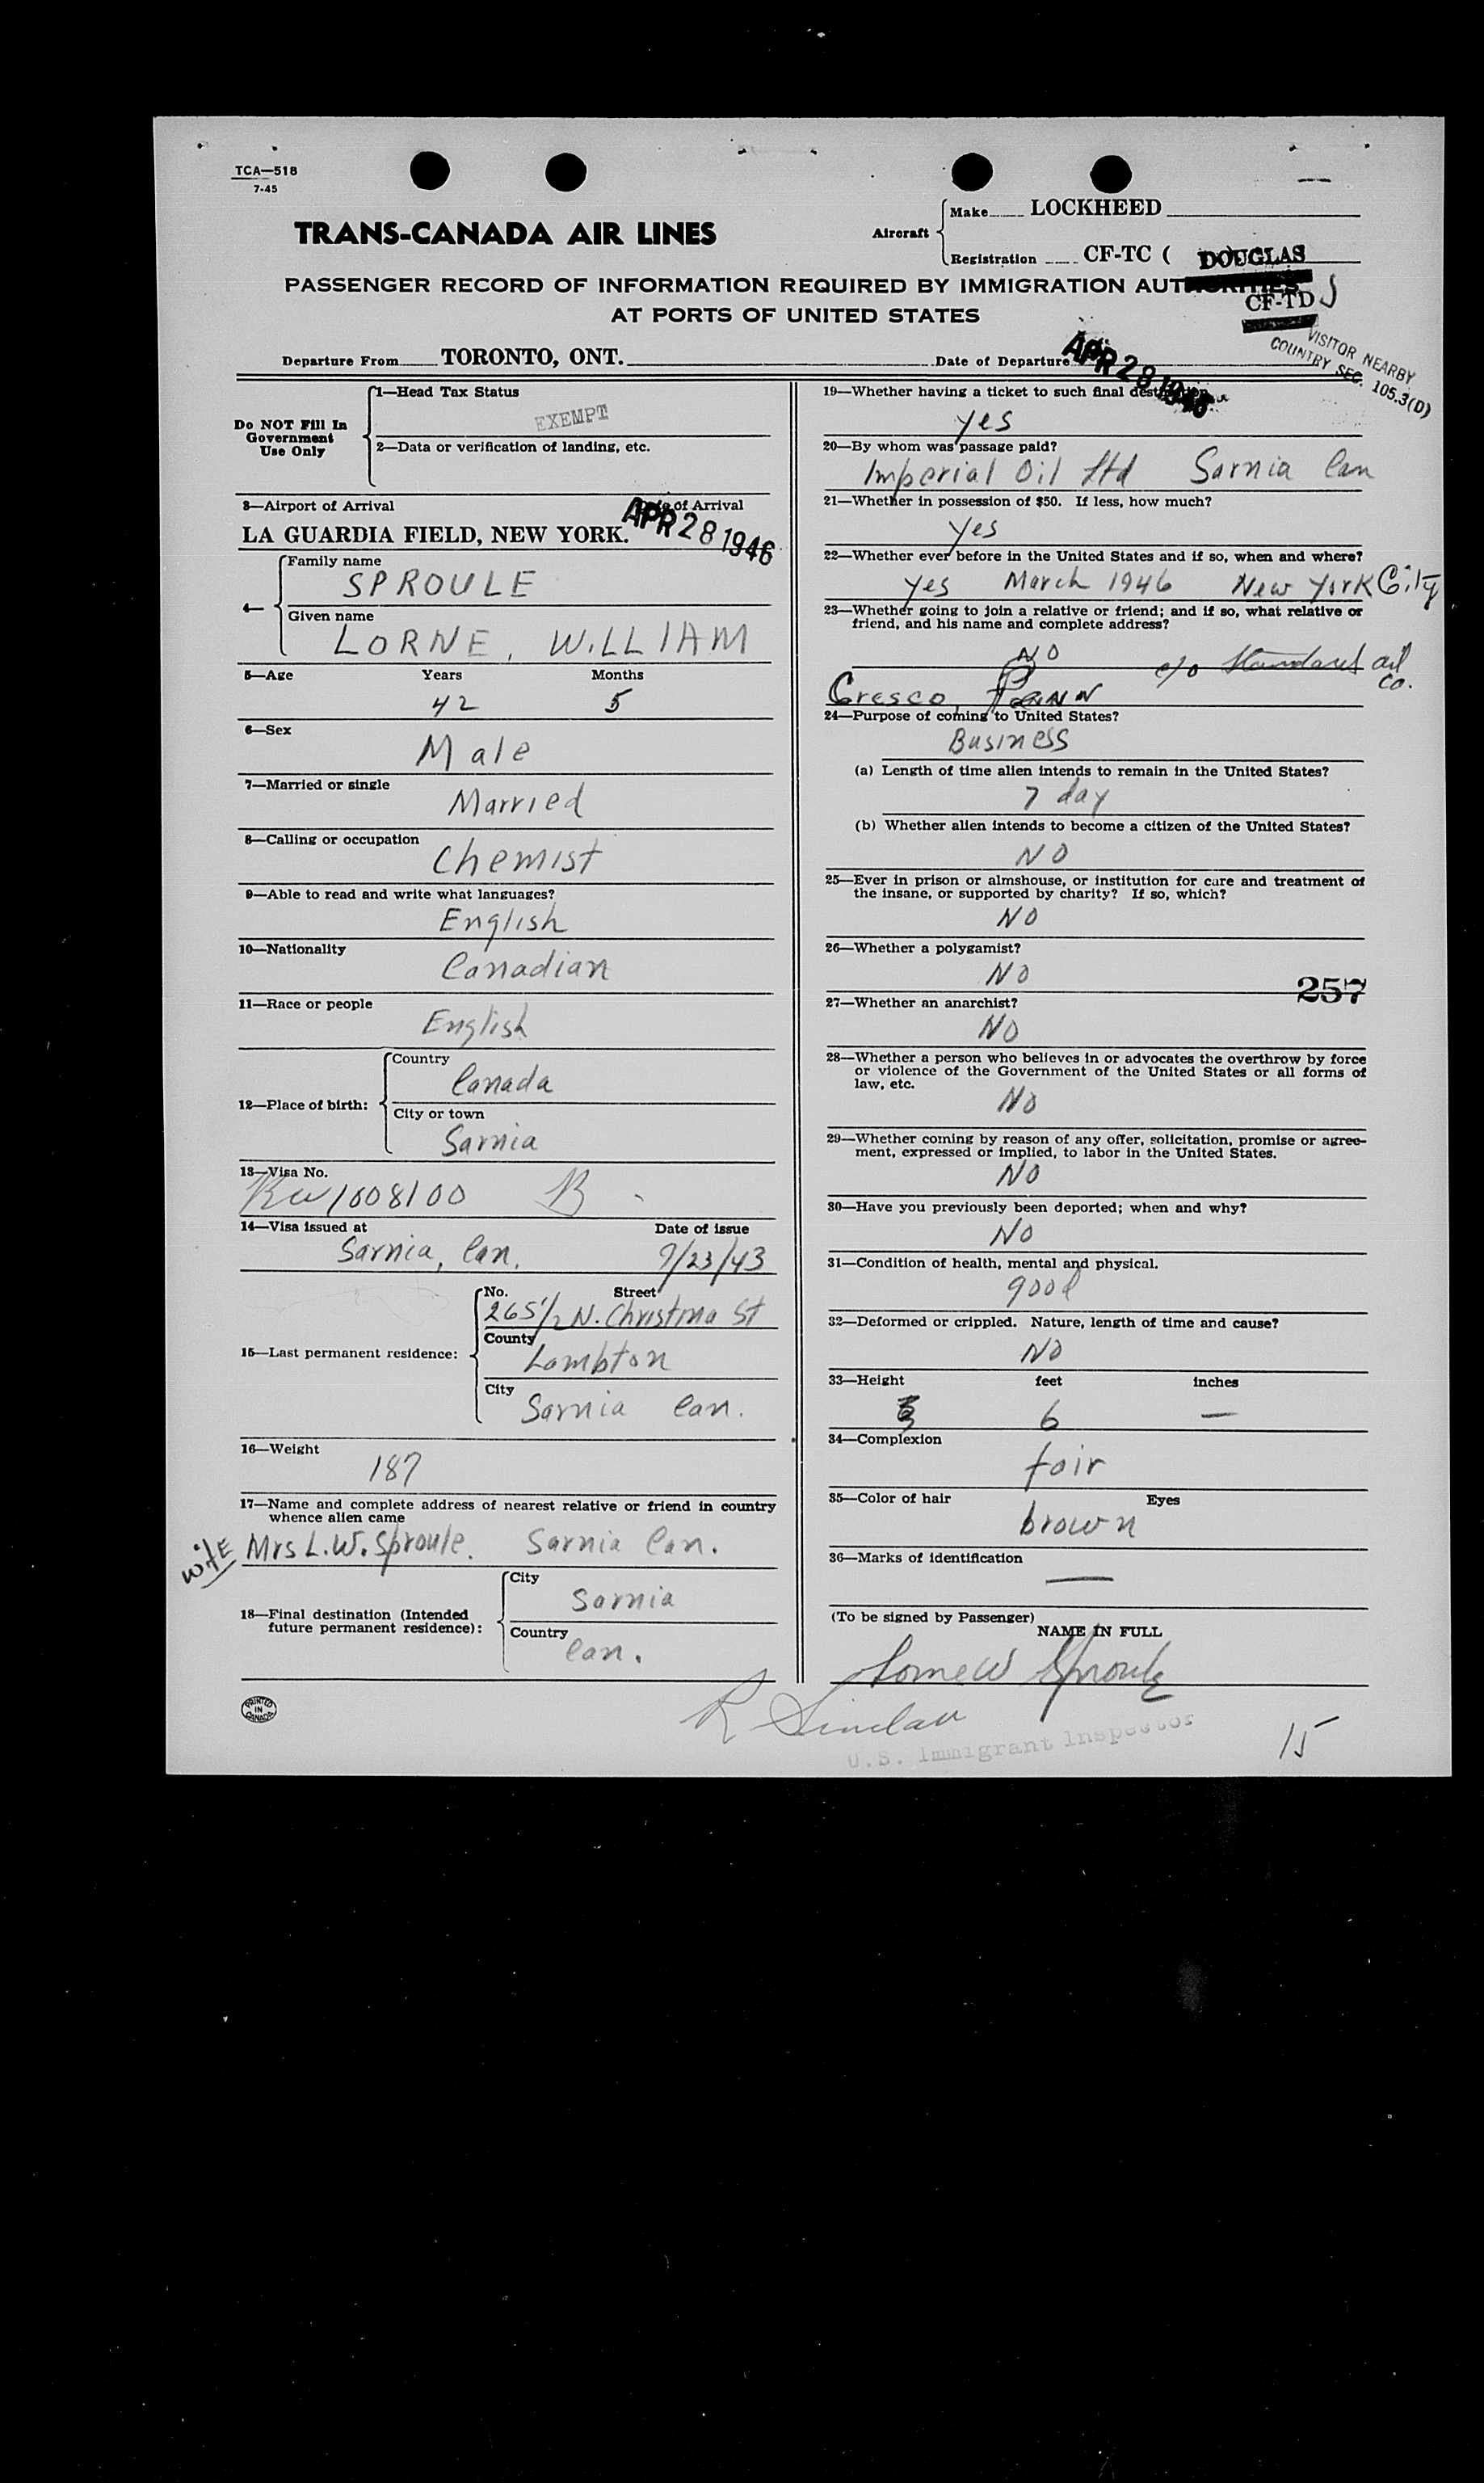 TCA—518
7-45
TRANS-CANADA AIR LINES
Aircraft
Make LOCKHEED
Registration CF-TC (
DOUGLAS
PASSENGER RECORD OF INFORMATION REQUIRED BY IMMIGRATION AUTHORITIES
CF-TD J
AT PORTS OF UNITED STATES
VISITOR NEARBY
COUNTRY SEC. 105.3(D)
Departure From TORONTO, ONT. Date of Departure APR 28 1946
Do NOT Fill In
Government
Use Only
1—Head Tax Status
EXEMPT
2—Data or verification of landing, etc.
3—Airport of Arrival Date of Arrival
LA GUARDIA FIELD, NEW YORK. APR 28 1946
4—
Family name
SPROULE
Given name
LORNE, WILLIAM
5—Age Years Months
42 5
6—Sex
Male
7—Married or single
Married
8—Calling or occupation
Chemist
9—Able to read and write what languages?
English
10—Nationality
Canadian
11—Race or people
English
12—Place of birth:
Country
Canada
City or town
Sarnia
13—Visa No.
1008100 B
14—Visa issued at Date of issue
Sarnia, Can. 9/23/43
15—Last permanent residence:
No. Street
265½ N. Christina St
County
Lambton
City
Sarnia Can.
16—Weight
187
17—Name and complete address of nearest relative or friend in country
whence alien came
wife Mrs L.W. Sproule. Sarnia Can.
18—Final destination (Intended
future permanent residence):
City
Sarnia
Country
Can.
PRINTED
IN
CANADA
19—Whether having a ticket to such final destination.
yes
20—By whom was passage paid?
Imperial Oil Ltd Sarnia Can
21—Whether in possession of $50. If less, how much?
Yes
22—Whether ever before in the United States and if so, when and where?
yes March 1946 New York City
23—Whether going to join a relative or friend; and if so, what relative or
friend, and his name and complete address?
NO c/o Standard Oil
Co.
Cresco Penn
24—Purpose of coming to United States?
Business
(a) Length of time alien intends to remain in the United States?
7 day
(b) Whether alien intends to become a citizen of the United States?
NO
25—Ever in prison or almshouse, or institution for care and treatment of
the insane, or supported by charity? If so, which?
NO
26—Whether a polygamist?
NO
257
27—Whether an anarchist?
NO
28—Whether a person who believes in or advocates the overthrow by force
or violence of the Government of the United States or all forms of
law, etc.
No
29—Whether coming by reason of any offer, solicitation, promise or agree-
ment, expressed or implied, to labor in the United States.
NO
30—Have you previously been deported; when and why?
No
31—Condition of health, mental and physical.
good
32—Deformed or crippled. Nature, length of time and cause?
NO
33—Height feet inches
6 —
34—Complexion
fair
35—Color of hair Eyes
brown
36—Marks of identification
—
(To be signed by Passenger)
NAME IN FULL
Lorne W Sproule
R Sinclair
U.S. Immigrant Inspector
15